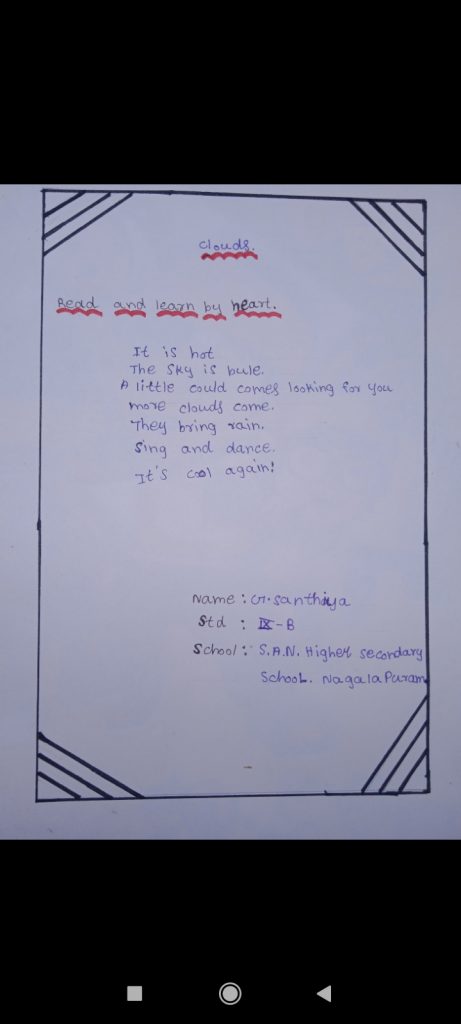 Clouds.
Read and learn by heart.
It is hot
The Sky is bule.
A little could comes looking for you
more clouds come.
They bring rain.
Sing and dance.
It's cool again!
Name : G.santhiya
Std : IX-B
School : S.A.N. Higher secondary
School. Nagalapuram